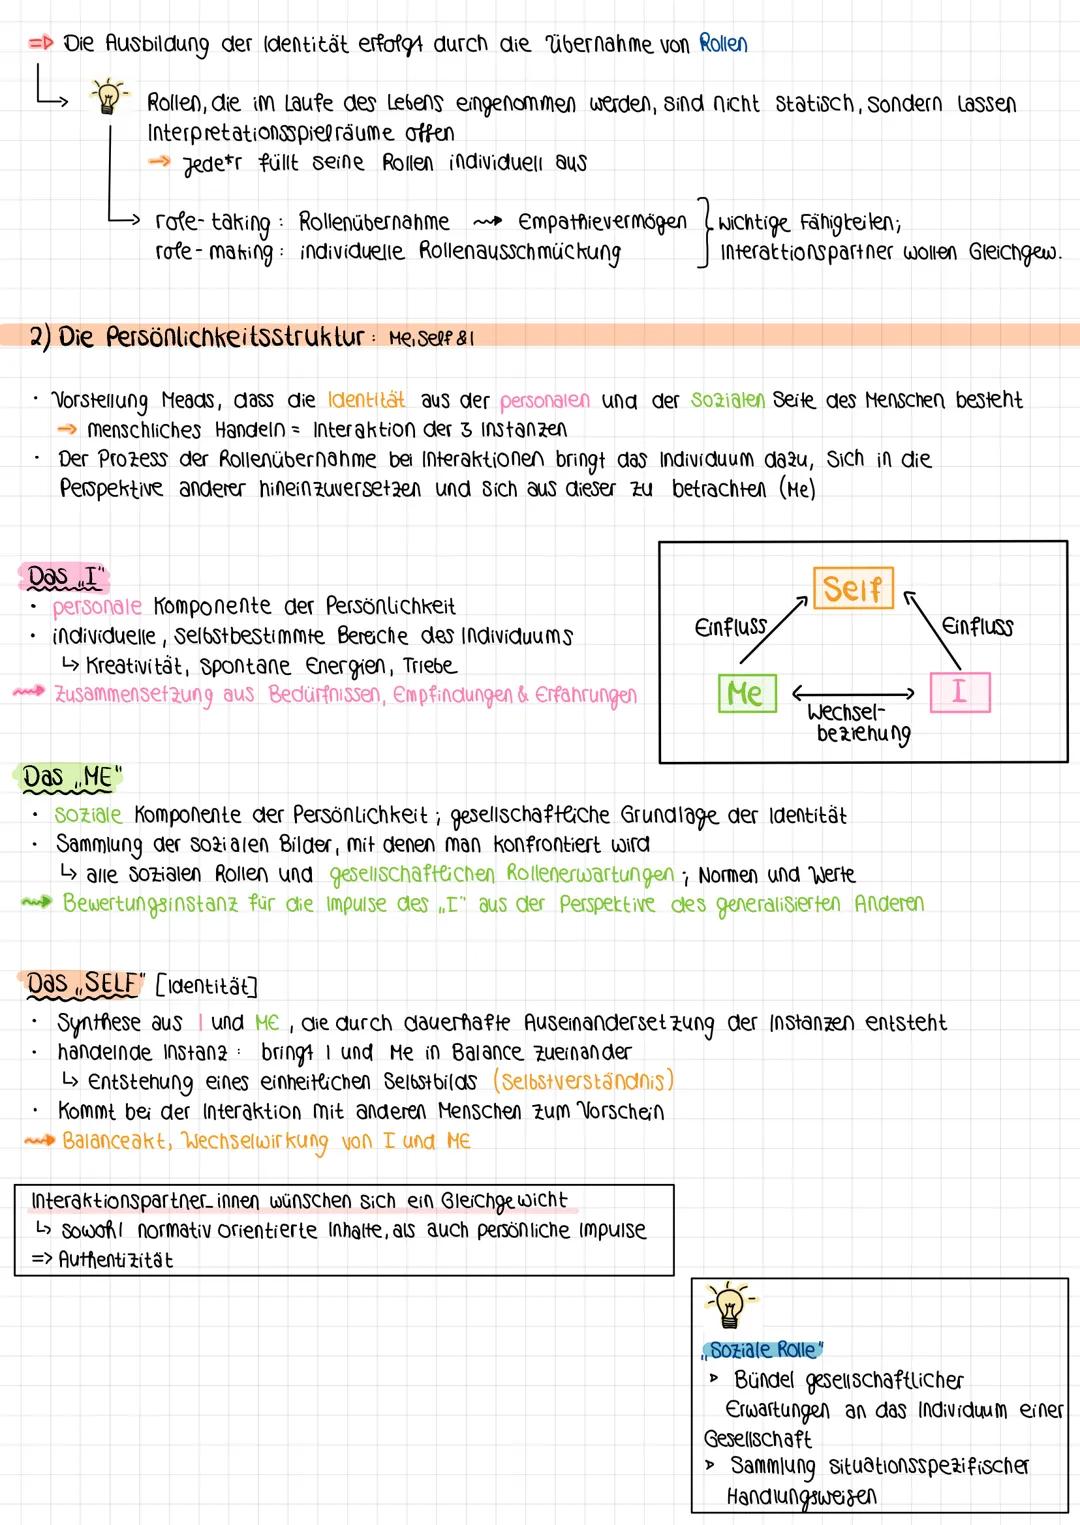 => Die Ausbildung der Identität erfolgt durch die Übernahme von Rollen
Rollen, die im Laufe des Lebens eingenommen werden, sind nicht statisch, sondern lassen
Interpretationsspielräume offen
→ Jede*r füllt seine Rollen individuell aus
role-taking: Rollenübernahme ⇝ Empathievermögen } wichtige Fähigkeiten;
role-making: individuelle Rollenausschmückung Interaktionspartner wollen Gleichgew.
2) Die Persönlichkeitsstruktur: Me, Self & I
· Vorstellung Meads, dass die Identität aus der personalen und der sozialen Seite des Menschen besteht
→ menschliches Handeln = Interaktion der 3 Instanzen
· Der Prozess der Rollenübernahme bei Interaktionen bringt das Individuum dazu, sich in die
Perspektive anderer hineinzuversetzen und sich aus dieser zu betrachten (Me)
Das „I"
· personale Komponente der Persönlichkeit
· individuelle, selbstbestimmte Bereiche des Individuums
↳ Kreativität, spontane Energien, Triebe
⇝ Zusammensetzung aus Bedürfnissen, Empfindungen & Erfahrungen
Self
Einfluss Einfluss
Me I
Wechsel-
beziehung
Das „ME"
· soziale Komponente der Persönlichkeit; gesellschaftliche Grundlage der Identität
· Sammlung der sozialen Bilder, mit denen man konfrontiert wird
↳ alle sozialen Rollen und gesellschaftlichen Rollenerwartungen; Normen und Werte
⇝ Bewertungsinstanz für die Impulse des „I" aus der Perspektive des generalisierten Anderen
Das „SELF" [Identität]
· Synthese aus I und ME, die durch dauerhafte Auseinandersetzung der Instanzen entsteht
· handelnde Instanz: bringt I und Me in Balance zueinander
↳ Entstehung eines einheitlichen Selbstbilds (Selbstverständnis)
· Kommt bei der Interaktion mit anderen Menschen zum Vorschein
⇝ Balanceakt, Wechselwirkung von I und ME
Interaktionspartner_innen wünschen sich ein Gleichgewicht
↳ sowohl normativ orientierte Inhalte, als auch persönliche Impulse
=> Authentizität
„Soziale Rolle"
▹ Bündel gesellschaftlicher
Erwartungen an das Individuum einer
Gesellschaft
▹ Sammlung situationsspezifischer
Handlungsweisen